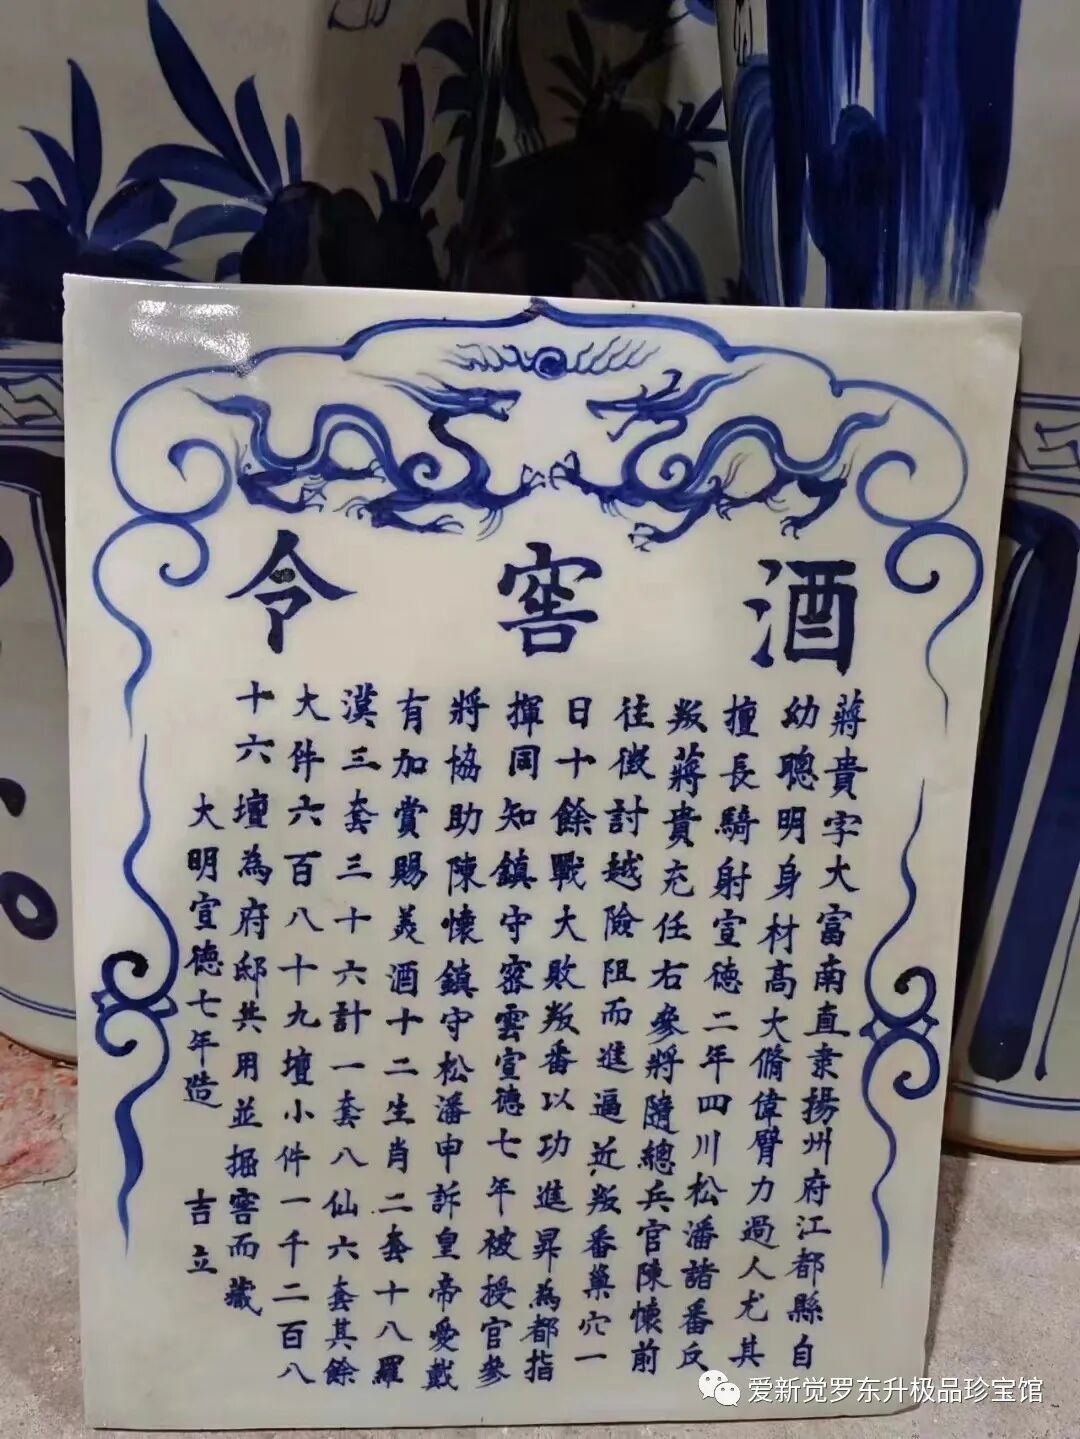 酒窖令
蔣貴字大富南直隶揚州府江都縣自
幼聰明身材高大脩偉臂力過人尤其
擅長騎射宣德二年四川松潘諸番反
叛蔣貴充任右參將隨總兵官陳懷前
往徵討越險阻而進逼近叛番巢穴一
日十餘戰大敗叛番以功進昇為都指
揮同知鎮守密雲宣德七年被授官參
將協助陳懷鎮守松潘申訴皇帝愛戴
有加賞賜美酒十二生肖二套十八羅
漠三套三十六計一套八仙六套其餘
大件六百八十九壇小件一千二百八
十六壇為府邸共用並掘窖而藏
大明宣德七年造 吉立
爱新觉罗东升极品珍宝馆